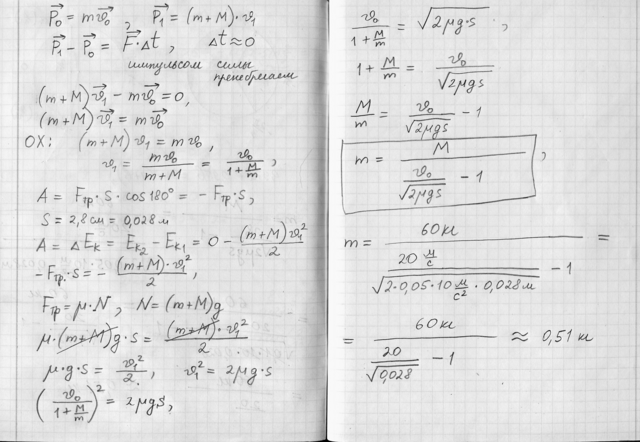 P⃗₀ = mv⃗₀ , P⃗₁ = (m+M)·v⃗₁
P⃗₁ - P⃗₀ = F⃗·Δt , Δt ≈ 0
импульсом силы
пренебрегаем
(m+M)v⃗₁ - mv⃗₀ = 0,
(m+M)v⃗₁ = mv⃗₀
OX: (m+M)v₁ = mv₀ ,
v₁ = mv₀/(m+M) = v₀/(1+M/m) ,
A = Fтр·S·cos180° = -Fтр·S ,
S = 2,8 см = 0,028 м
A = ΔEк = Eк₂ - Eк₁ = 0 - (m+M)v₁²/2
-Fтр·S = - (m+M)·v₁²/2 ,
Fтр = μ·N , N = (m+M)g
μ·(m+M)g·S = (m+M)·v₁²/2
μ·g·S = v₁²/2 , v₁² = 2μg·S
(v₀/(1+M/m))² = 2μgS ,
v₀/(1+M/m) = √(2μg·S) ,
1 + M/m = v₀/√(2μgS)
M/m = v₀/√(2μgS) - 1
m = M/(v₀/√(2μgS) - 1) ,
m = 60кг/(20 м/с/√(2·0,05·10 м/с²·0,028м) - 1) =
= 60кг/(20/√0,028 - 1) ≈ 0,51 кг